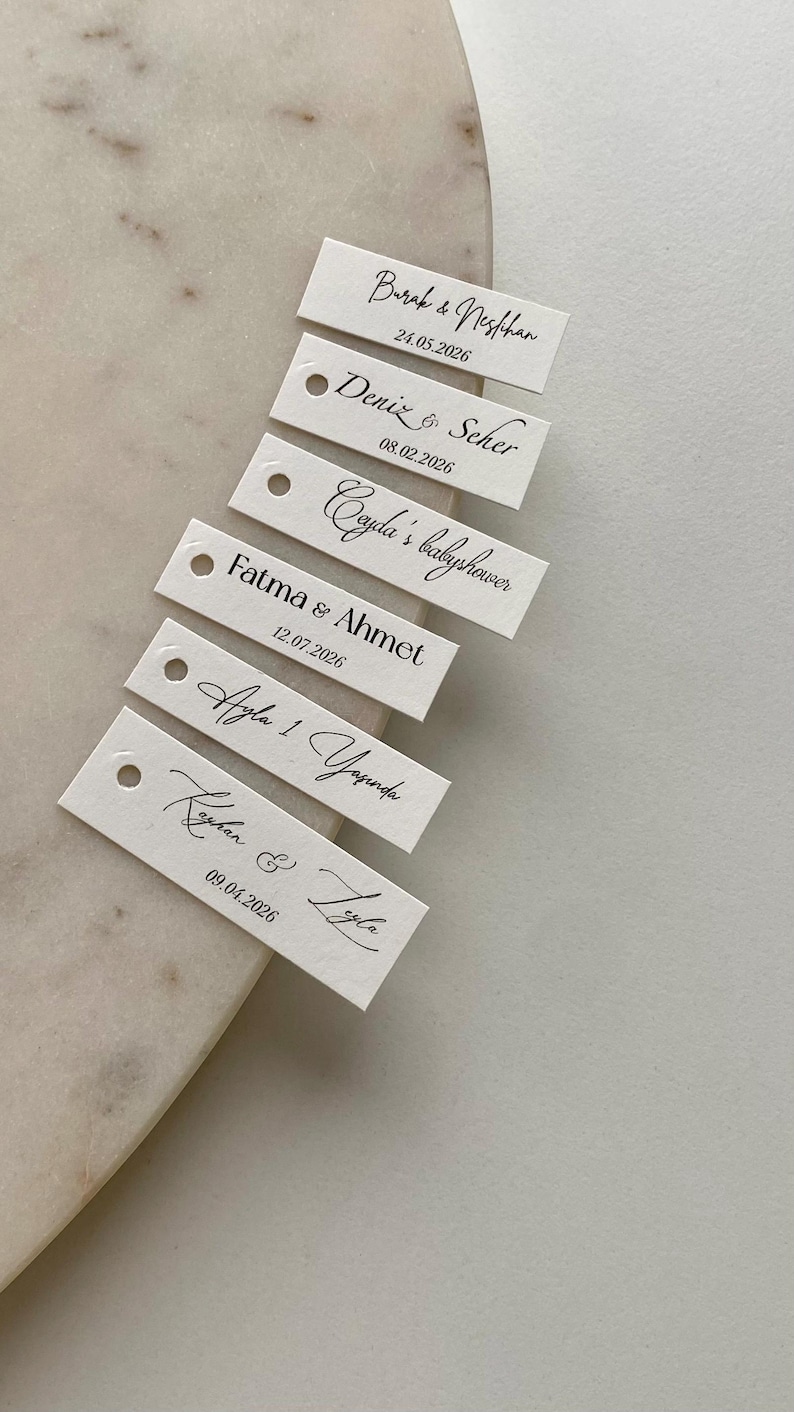 Burak & Neslihan
24.05.2026
Deniz & Seher
08.02.2026
Ceyda's babyshower
Fatma & Ahmet
12.07.2026
Ayla 1 Yaşında
Kayhan & Leyla
09.04.2026